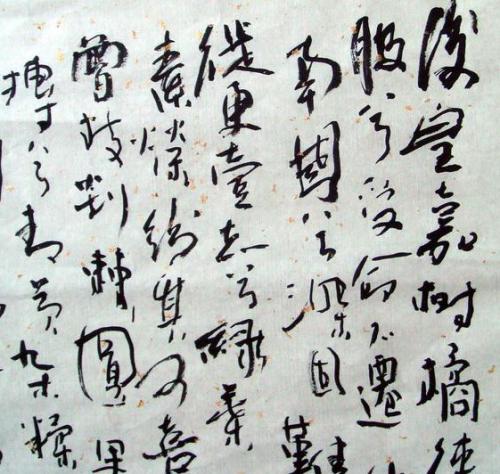 後皇嘉樹橘徠
服兮受命不遷
南國兮深固難
徙更壹志兮綠葉
素榮紛其可喜
曾枝剡棘圓果
摶兮青黃雜糅